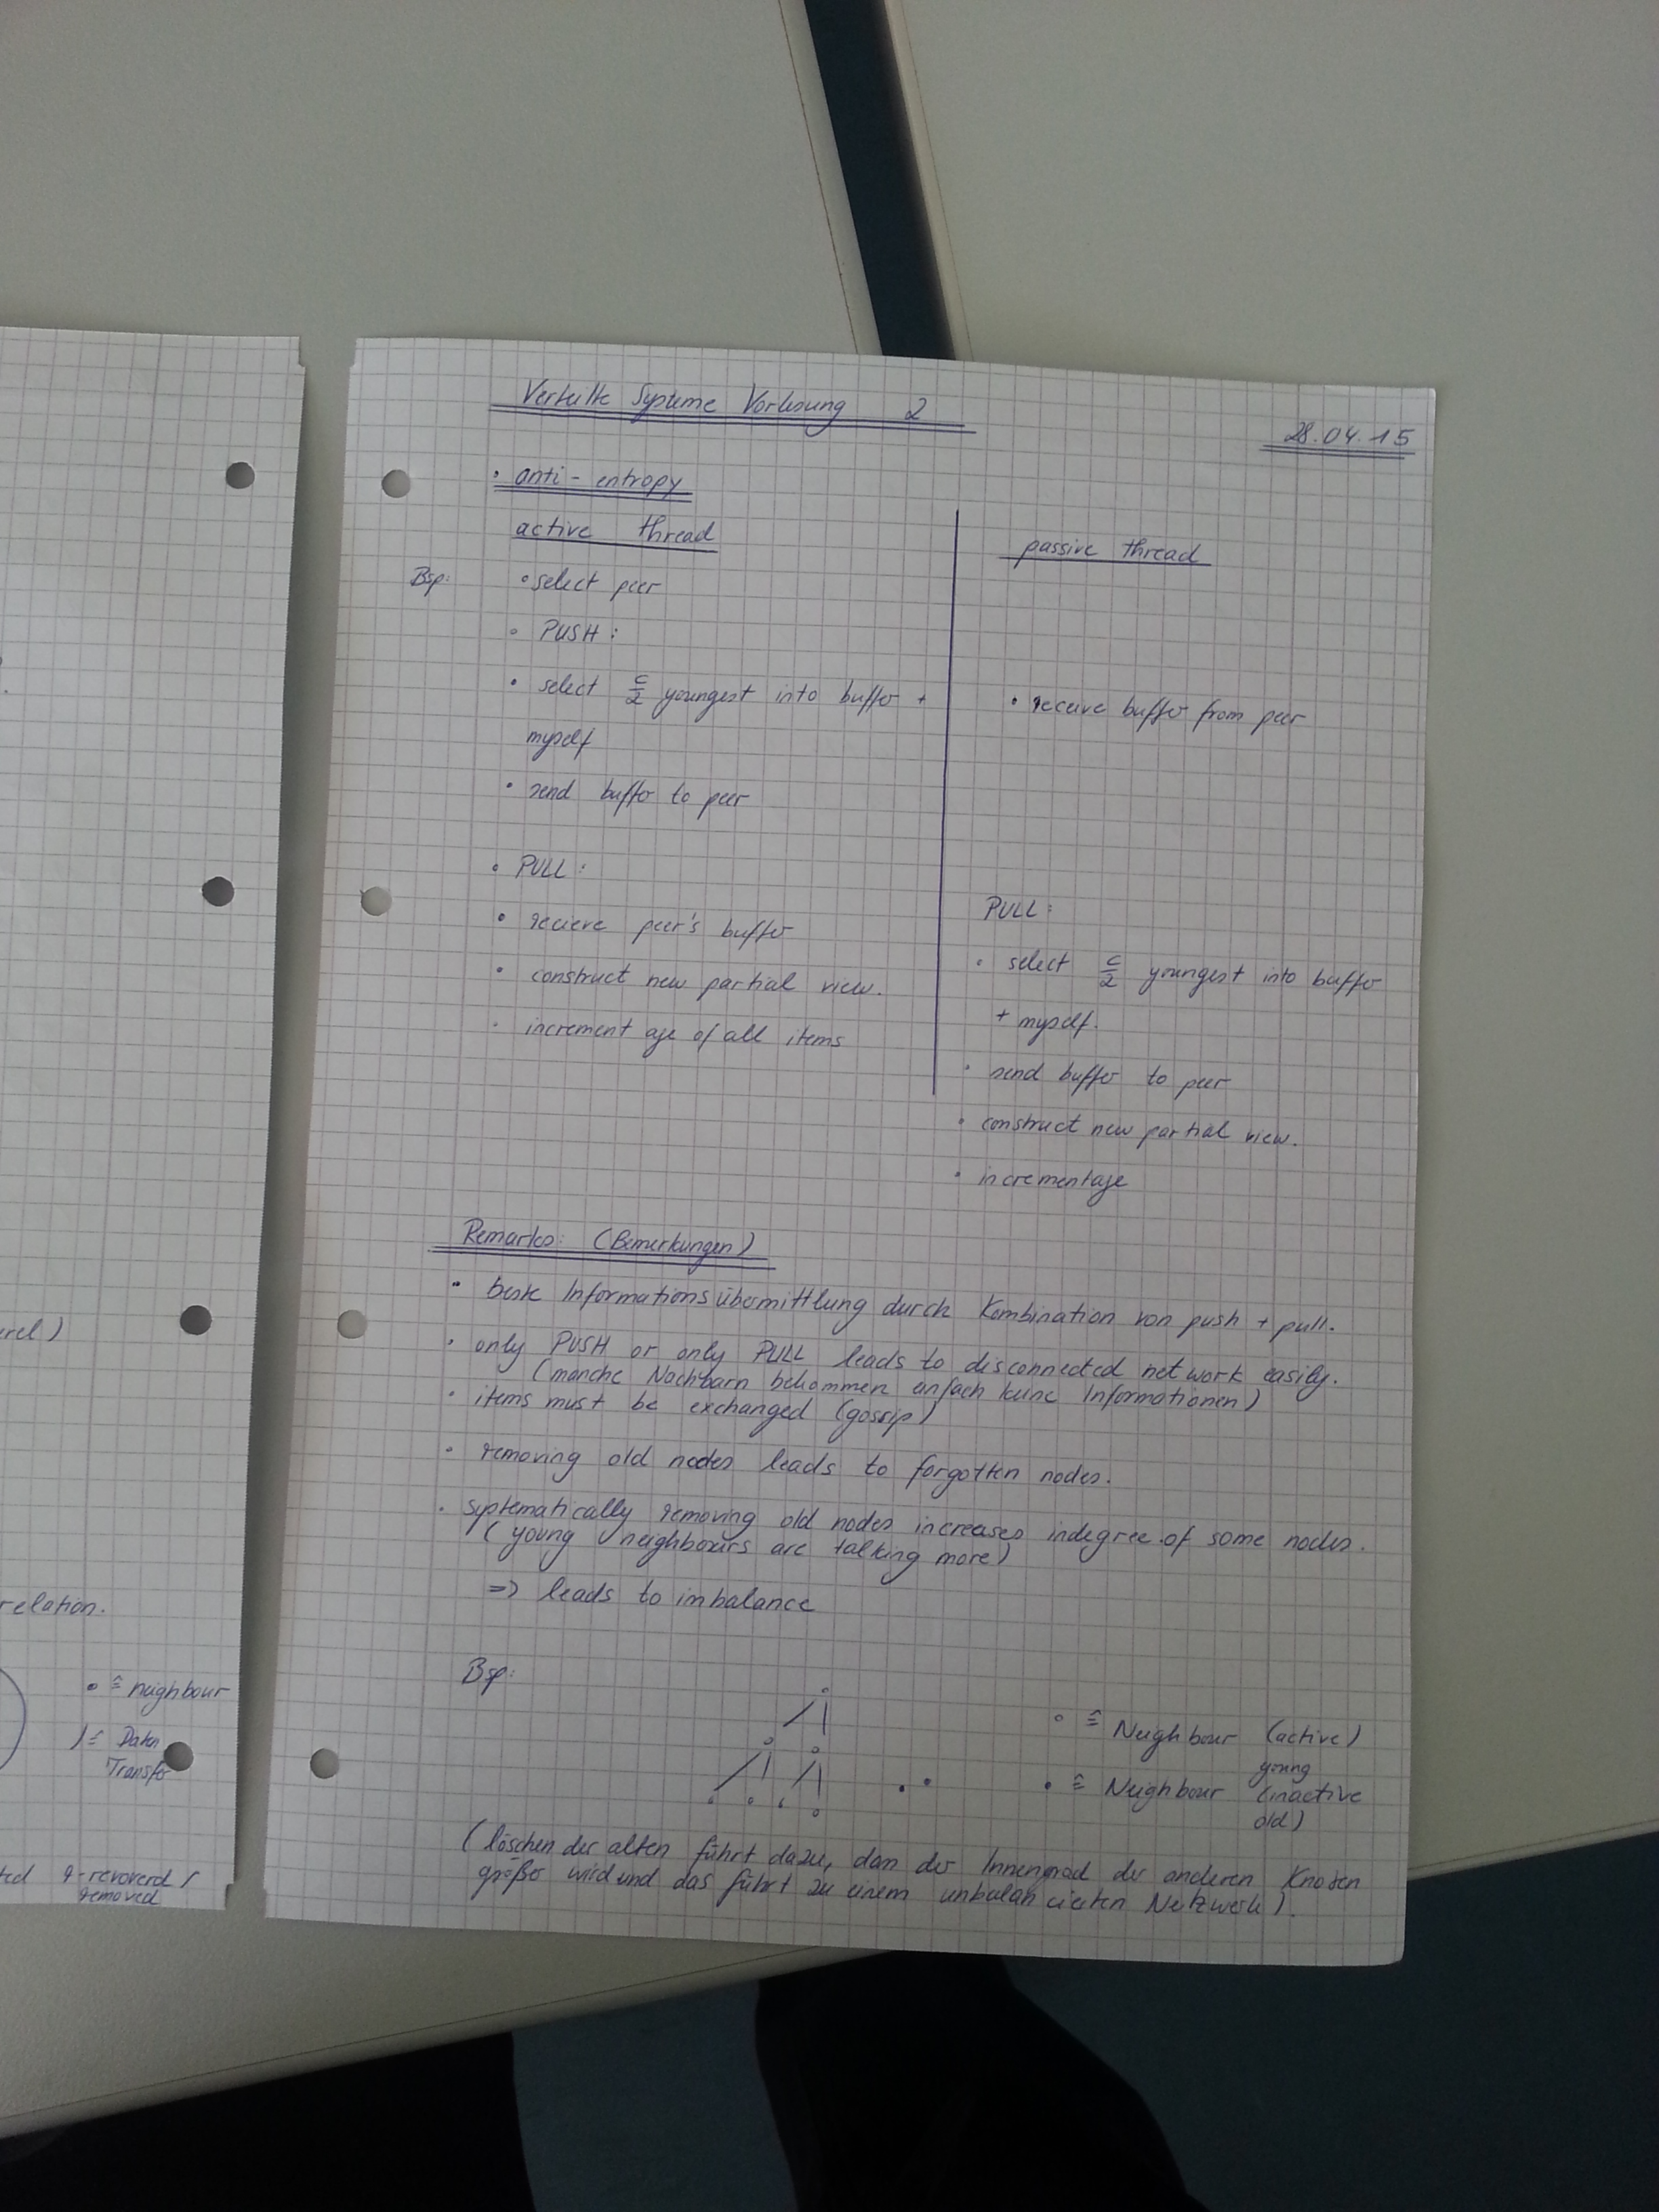 Verteilte Systeme Vorlesung 2
28.04.15
• anti-entropy
active thread
passive thread
Bsp: • select peer
• PUSH:
• select c/2 youngest into buffer +
myself
• send buffer to peer
• receive buffer from peer
• PULL:
• recieve peer's buffer
• construct new partial view.
• increment age of all items
PULL:
• select c/2 youngest into buffer
+ myself.
• send buffer to peer
• construct new partial view.
• increment age
Remarks: (Bemerkungen)
• beste Informationsübermittlung durch Kombination von push + pull.
• only PUSH or only PULL leads to disconnected network easily.
(manche Nachbarn bekommen einfach keine Informationen)
• items must be exchanged (gossip)
• removing old nodes leads to forgotten nodes.
• systematically removing old nodes increases indegree of some nodes.
(young neighbours are talking more)
=> leads to imbalance
Bsp:
◦ ≙ Neighbour (active)
young
• ≙ Neighbour (inactive
old)
(löschen der alten führt dazu, dass der Innengrad der anderen Knoten
größer wird und das führt zu einem unbalancierten Netzwerk).
relation.
• ≙ neighbour
) ≙ Daten
Transfer
removed